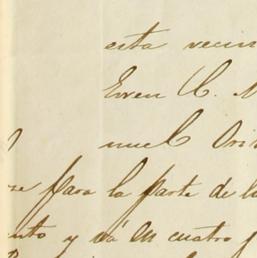 esta vecin
Ewen C. M
nuel Ori
re para la parte de l
nto y vá en cuatro f